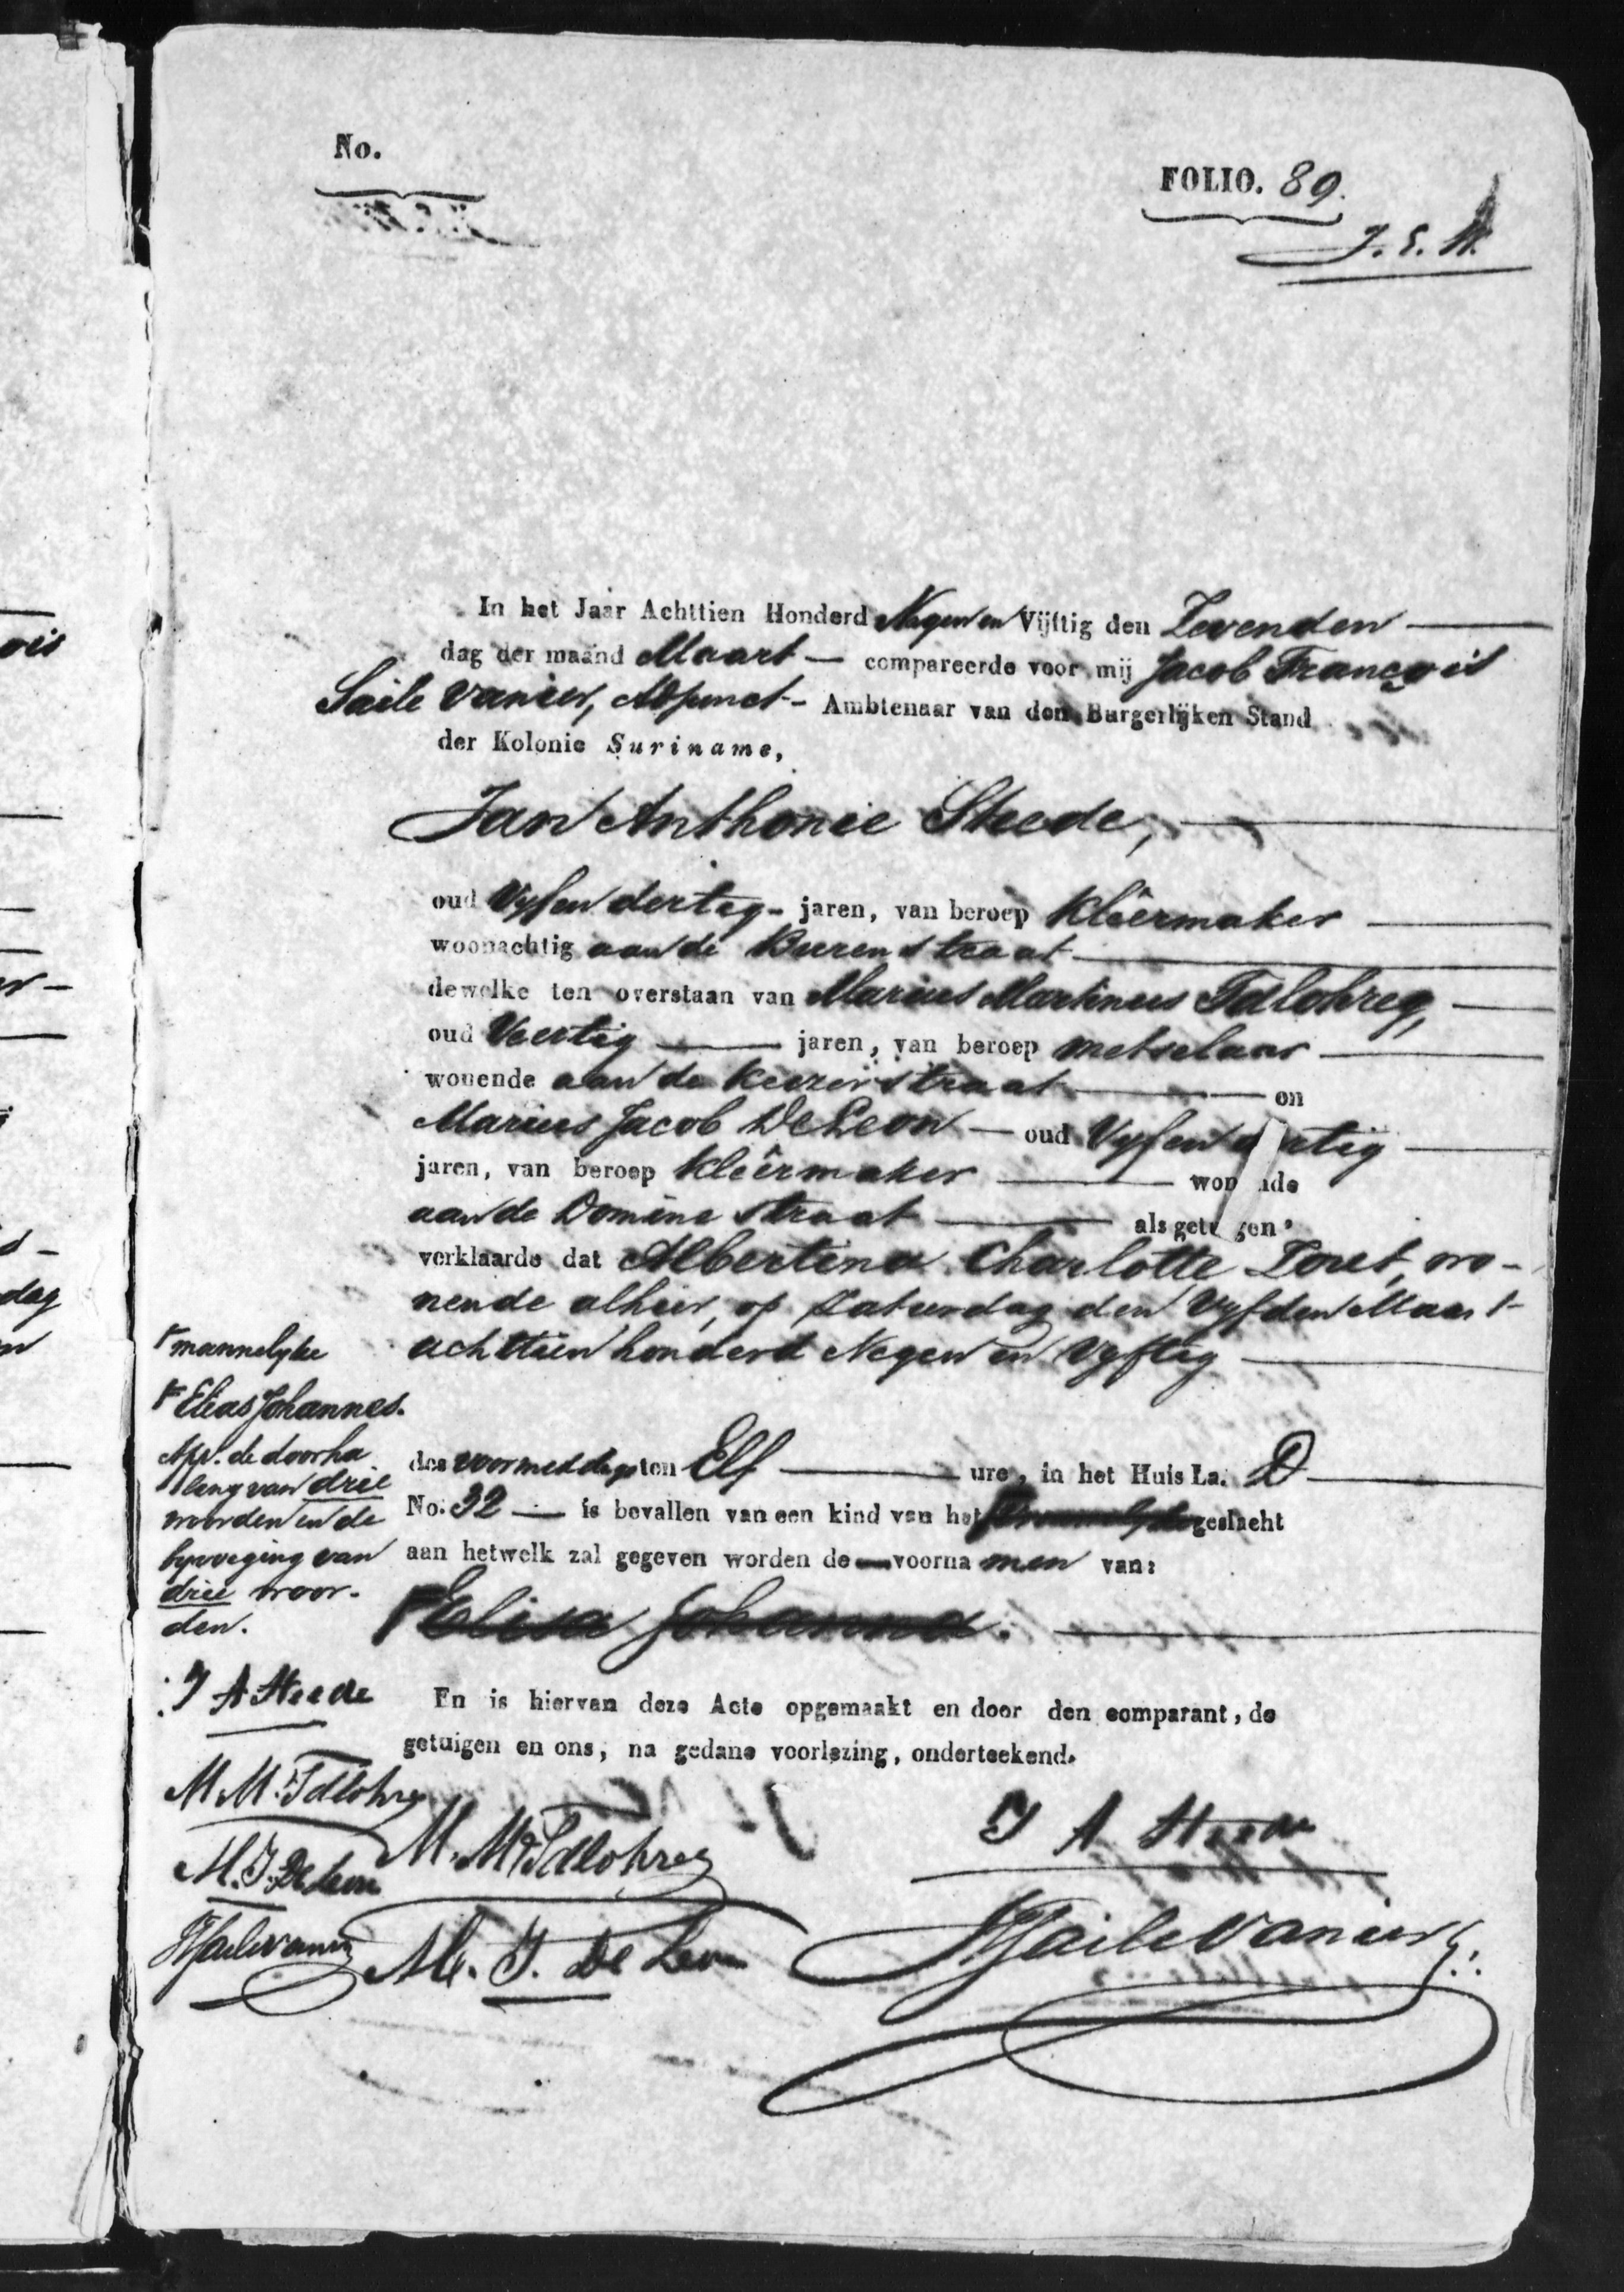 No.
FOLIO. 89.
J. E. H.
In het Jaar Achttien Honderd Negen en Vijftig den Zevenden
dag der maand Maart — compareerde voor mij Jacob François
Saile Vanier, Adjunct- Ambtenaar van den Burgerlijken Stand
der Kolonie Suriname,
Jan Anthonie Steede,
oud Vyf en dertig - jaren, van beroep Kleêrmaker
woonachtig aan de Burenstraat
dewelke ten overstaan van Marius Martinus Idlohreg,
oud Veertig — jaren, van beroep metselaar
wonende aan de Keizerstraat — en
Marius Jacob De Leon — oud Vyf en rtig
jaren, van beroep Kleêrmaker — won nde
aan de Domine straat — als getu gen
verklaarde dat Albertina Charlotte Zout, wo-
nende alhier, op Saturdag den Vyfden Maart
achttien honderd Negen en Vyftig
des voormiddags ten Elf — ure, in het Huis La. D
No. 32 — is bevallen van een kind van het geslacht
aan hetwelk zal gegeven worden de voornamen van:
Elisa Johanna.
mannelyke
Elias Johannes.
de doorha
ling van drie
woorden en de
byvoeging van
drie woor-
den.
J A Steede
M M. Idlohreg
M. J. De Leon
JFSailevanier
En is hiervan deze Acte opgemaakt en door den comparant, de
getuigen en ons, na gedane voorlezing, onderteekend.
J A Steede
M. M Idlohreg
M. J. De Leon
JFSaile Vanier